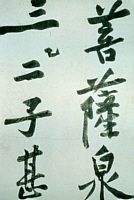 菩薩泉
三二子甚